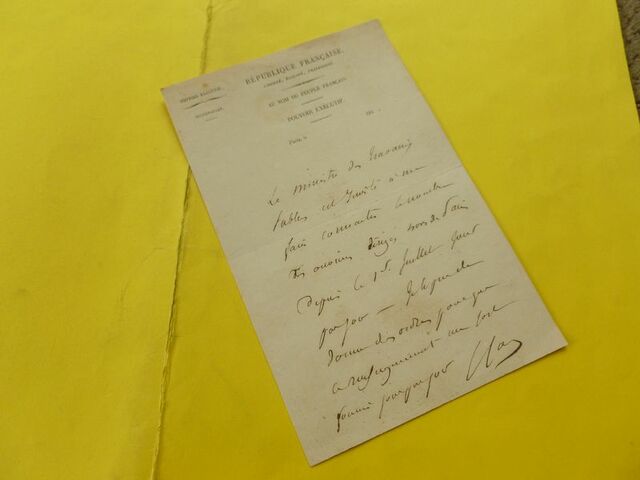 RÉPUBLIQUE FRANÇAISE.
LIBERTÉ, ÉGALITÉ, FRATERNITÉ.
AU NOM DU PEUPLE FRANÇAIS.
POUVOIR EXÉCUTIF.
Paris, le 184
Le ministre des travaux
publics est Invité à me
faire connaitre le nombre
des ouvriers dirigés hors de Paris
depuis le 1er Juillet Jour
par jour — Je le prie de
donner des ordres pour que
ce renseignement me soit
fourni jour par jour